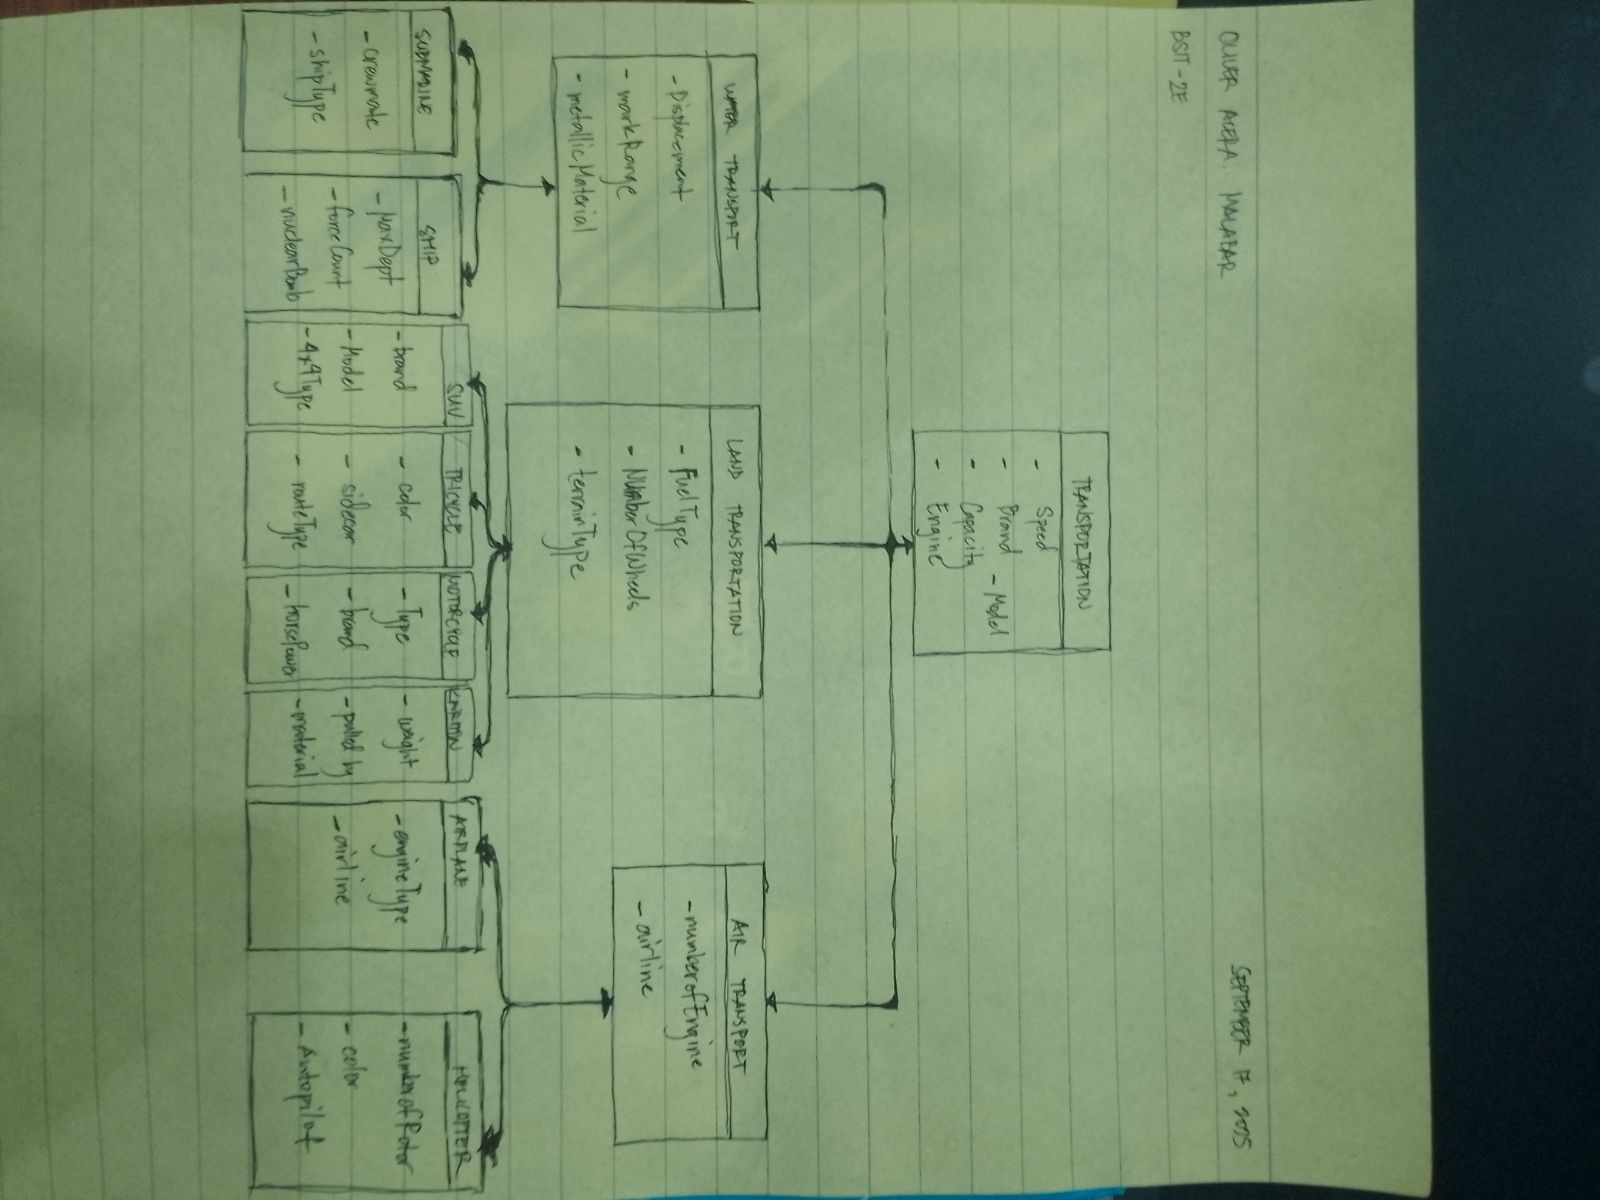 OLIVER ACERA MALABAR
SEPTEMBER 17, 2025
BSIT-2E
TRANSPORTATION
- Speed
- Brand - Model
- Capacity
- Engine
WATER TRANSPORT
- Displacement
- markRange
- metallicMaterial
LAND TRANSPORTATION
- FuelType
- NumberOfWheels
- terrainType
AIR TRANSPORT
- numberofEngine
- airline
SUBMARINE
- crewmate
- shipType
SHIP
- MaxDept
- forceCount
- nuclearBomb
SUV
- brand
- Model
- 4x4Type
TRICYCLE
- color
- sidecar
- routeType
MOTORCYCLE
- Type
- brand
- horsePower
KARITON
- weight
- pulled by
- material
AIRPLANE
- engineType
- airline
HELICOPTER
- numberofRotor
- color
- Autopilot